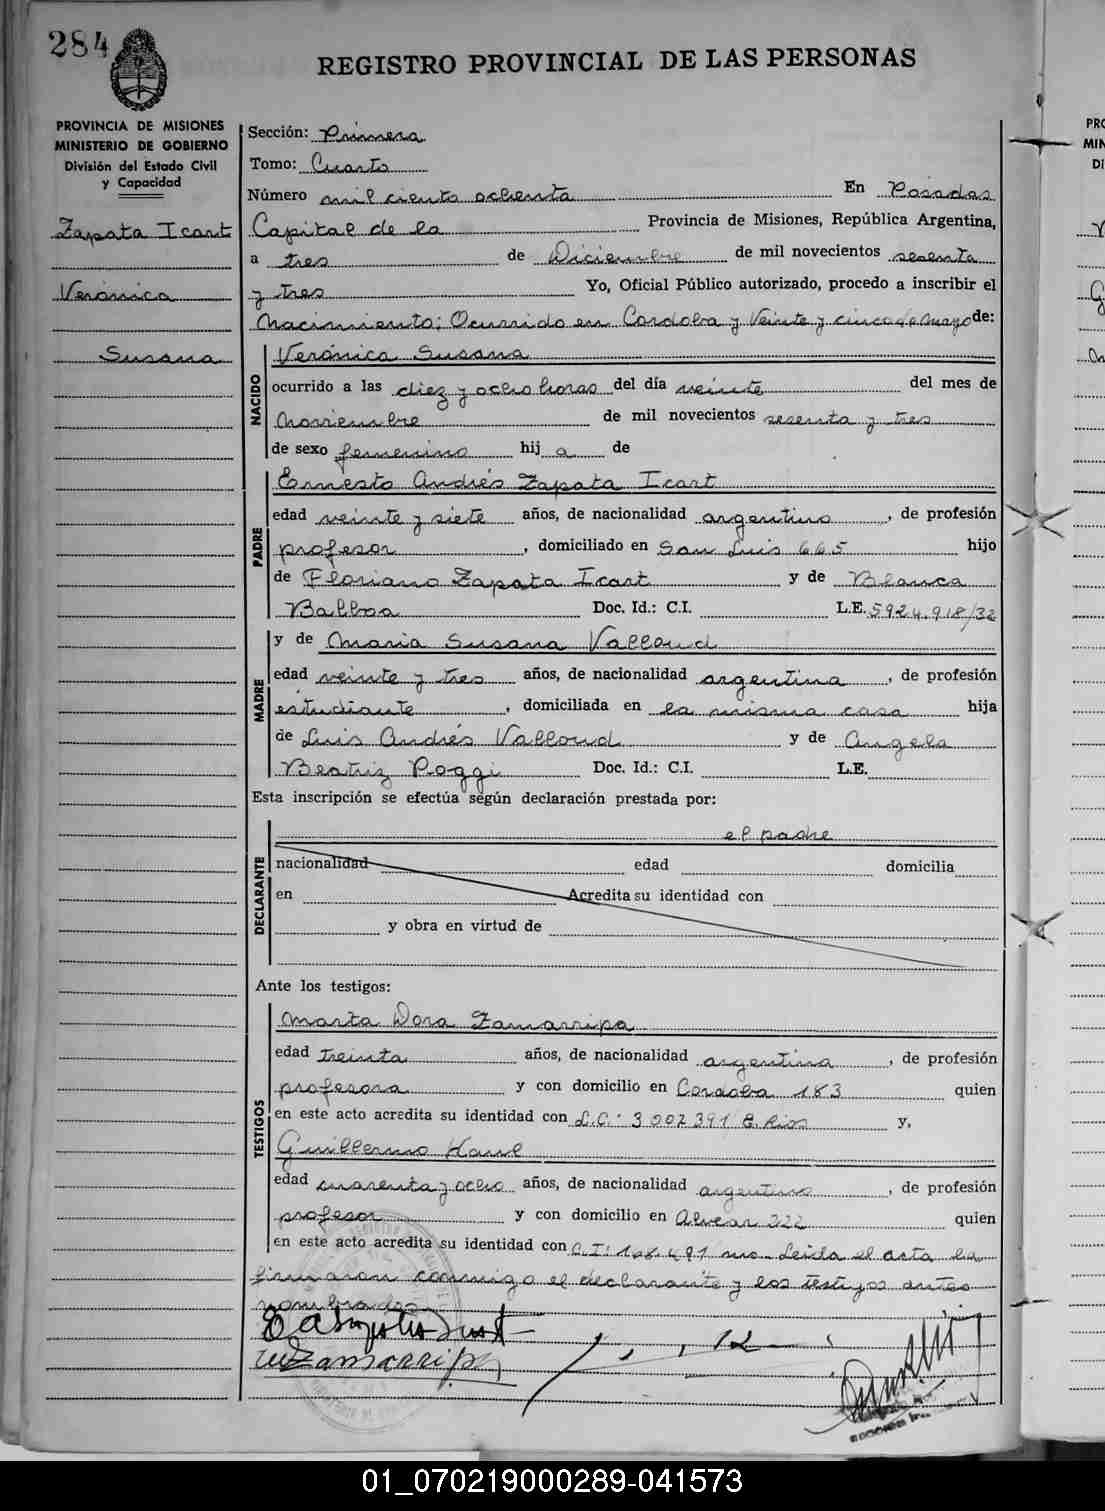 284
REGISTRO PROVINCIAL DE LAS PERSONAS
PROVINCIA DE MISIONES
MINISTERIO DE GOBIERNO
División del Estado Civil
y Capacidad
Zapata Icart
Verónica
Susana
Sección: Primera
Tomo: Cuarto
Número mil ciento ochenta En Posadas
Capital de la Provincia de Misiones, República Argentina,
a tres de Diciembre de mil novecientos sesenta
y tres Yo, Oficial Público autorizado, procedo a inscribir el
Nacimiento; Ocurrido en Cordoba y Veinte y cinco de Mayo de:
NACIDO
Verónica Susana
ocurrido a las diez y ocho horas del día veinte del mes de
Noviembre de mil novecientos sesenta y tres
de sexo femenino hij a de
PADRE
Ernesto Andrés Zapata Icart
edad veinte y siete años, de nacionalidad argentino, de profesión
profesor, domiciliado en San Luis 665 hijo
de Floriano Zapata Icart y de Blanca
Balboa Doc. Id.: C.I. L.E. 5924.918/32
MADRE
y de Maria SusanaVálloud
edad veinte y tres años, de nacionalidad argentina, de profesión
estudiante, domiciliada en la misma casa hija
de Luis AndrésVálloud y de Angela
Beatriz Poggi Doc. Id.: C.I. L.E.
Esta inscripción se efectúa según declaración prestada por:
DECLARANTE
el padre
nacionalidad edad domicilia
en Acredita su identidad con
y obra en virtud de
Ante los testigos:
TESTIGOS
Marta Dora Zamarripa
edad treinta años, de nacionalidad argentina, de profesión
profesora y con domicilio en Cordoba 183 quien
en este acto acredita su identidad con L.C: 3 007 391 E. Rios y,
Guillermo
edad cuarenta y ocho años, de nacionalidad argentino, de profesión
profesor y con domicilio en Alvear 222 quien
en este acto acredita su identidad con C.I: Leida el acta la
firmaron conmigo el declarante y los testigos antes
nombrados
Zamarripa
01_070219000289-041573